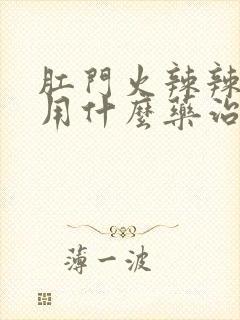 肛門火辣辣
用什麼藥治
薄一波